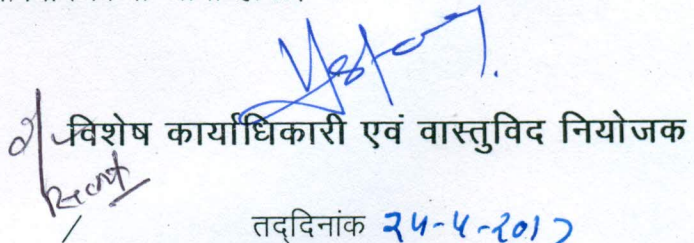 विशेष कार्याधिकारी एवं वास्तुविद नियोजक
तद्दिनांक २५-५-२०१७